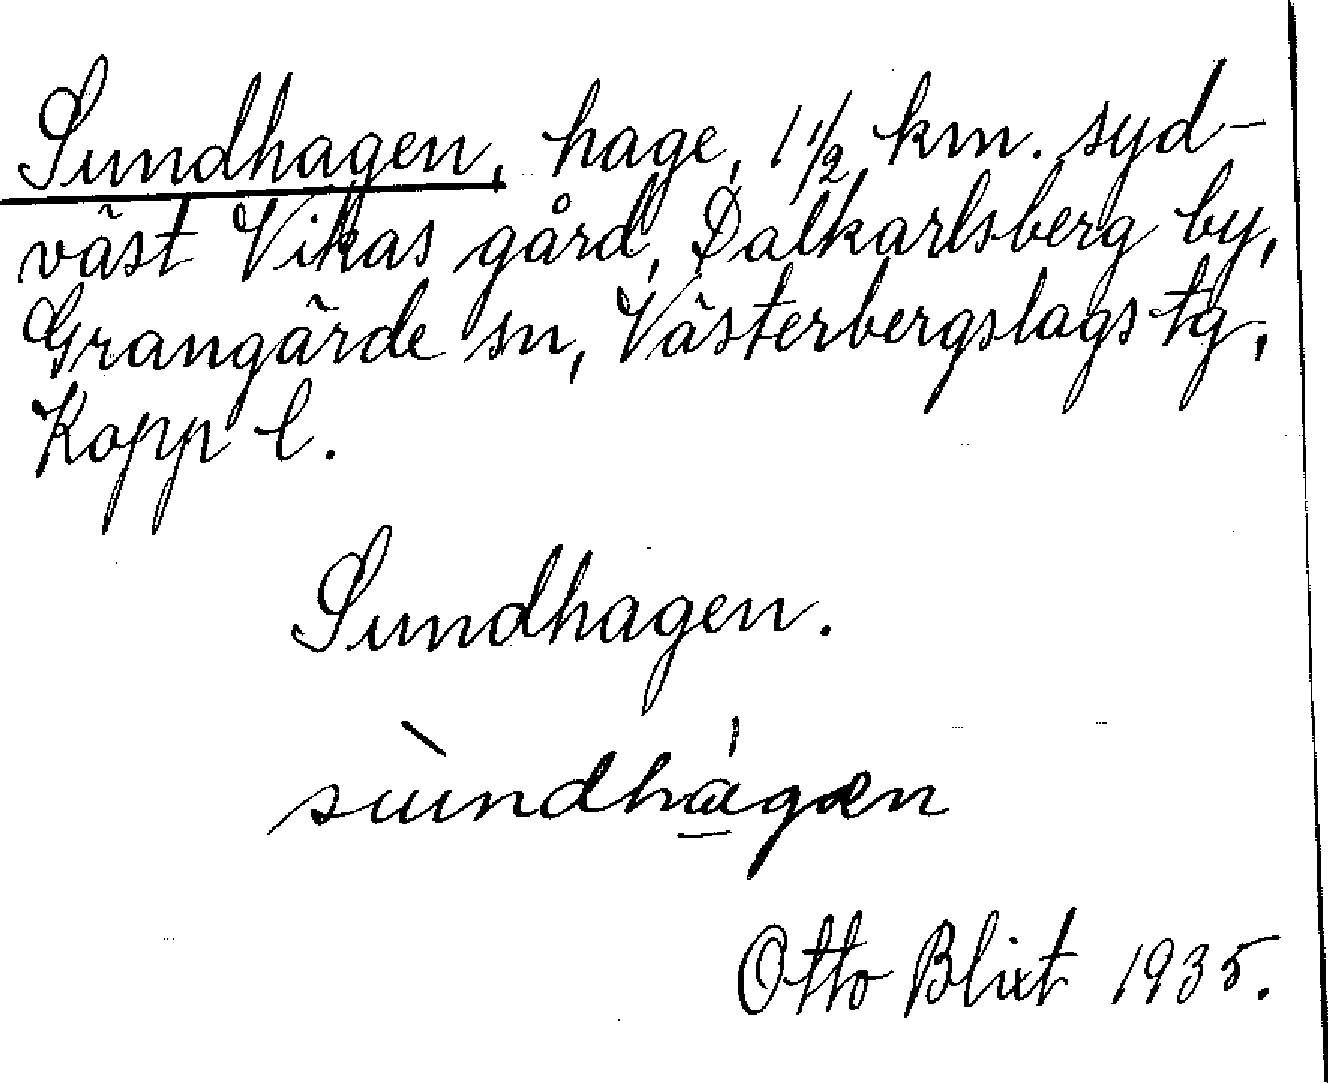 Sundhagen, hage, 1 1/2 km. syd-
väst Vikas gård, Dalkarlsberg by,
Grangärde sn, Västerbergslags tg,
Kopp l.
Sundhagen.
sùndhágæn
Otto Blixt 1935.